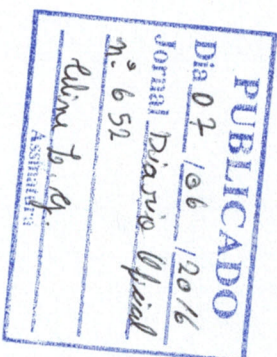 PUBLICADO
Dia 07 /06 /2016
Jornal Diario Oficial
nº 652
Assinatura